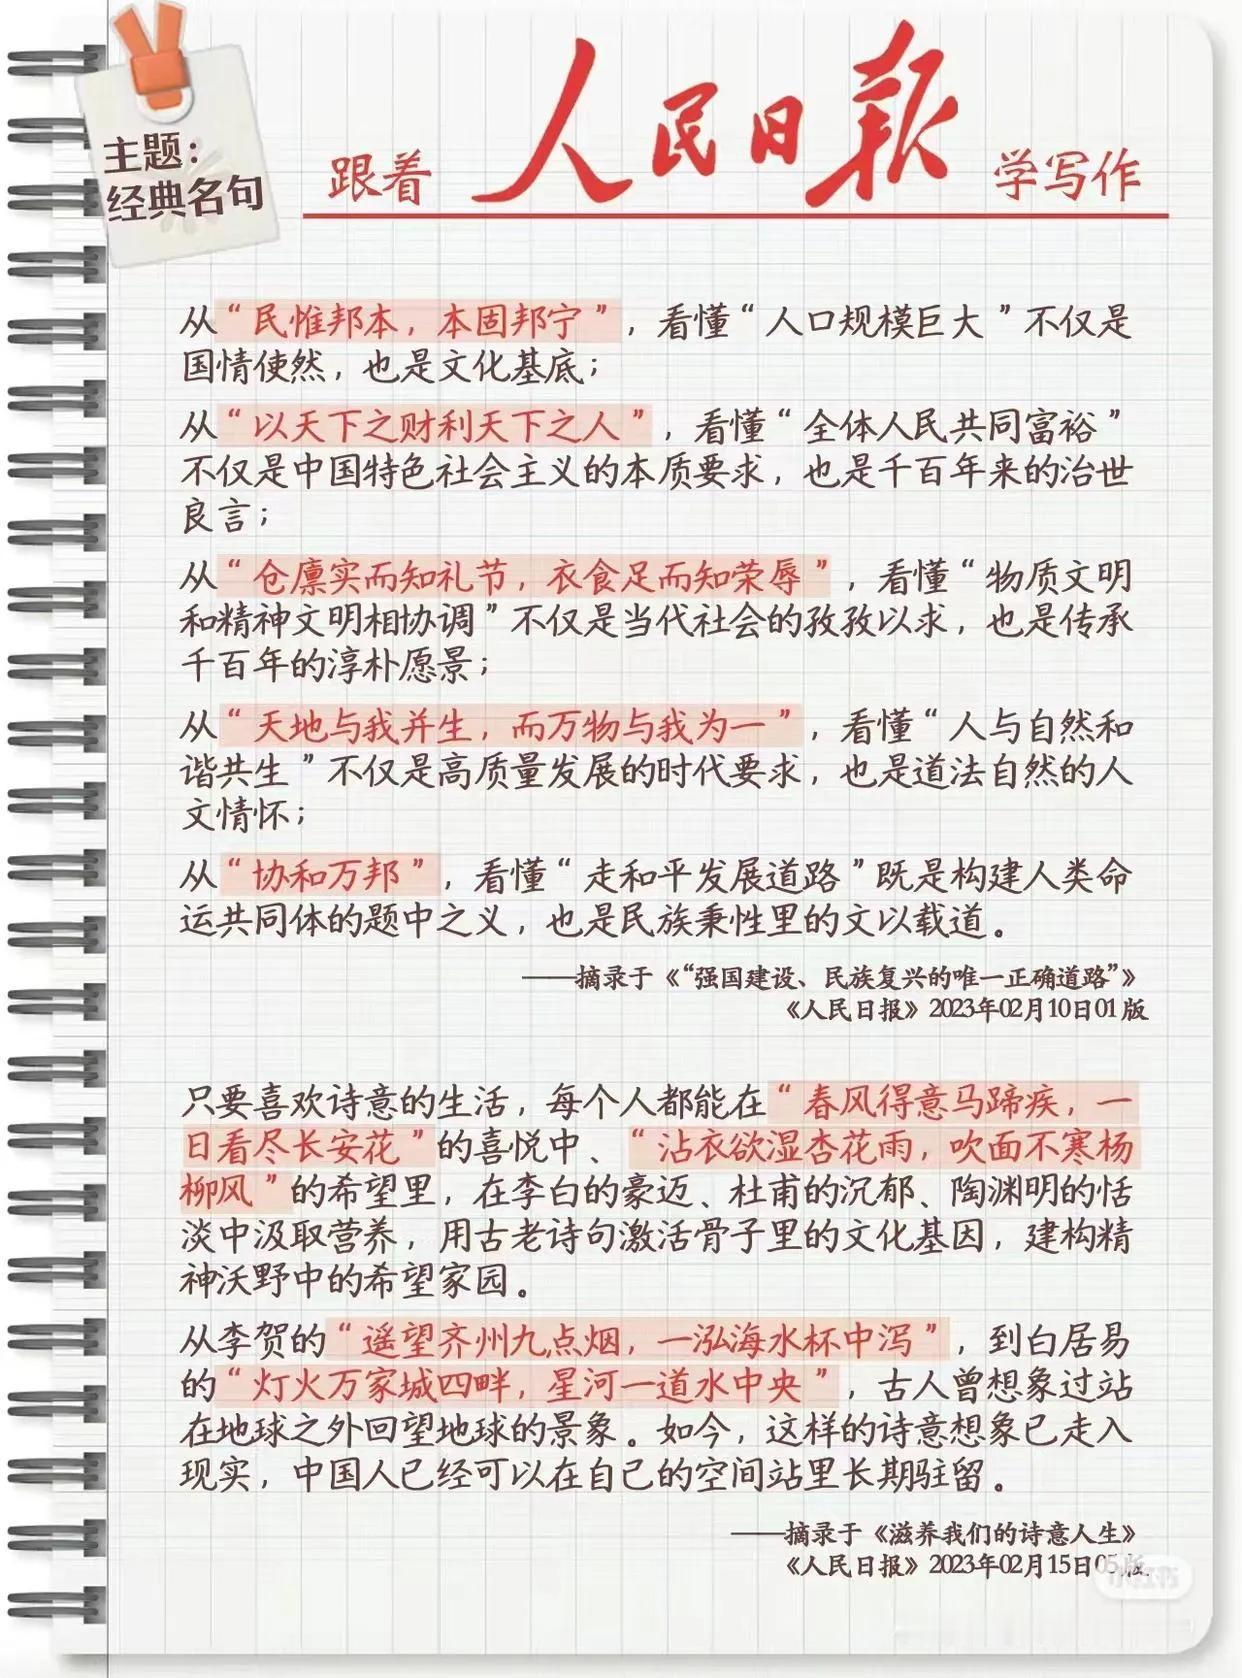 主题：
经典名句
跟着 人民日报 学写作
从“民惟邦本，本固邦宁”，看懂“人口规模巨大”不仅是
国情使然，也是文化基底；
从“以天下之财利天下之人”，看懂“全体人民共同富裕”
不仅是中国特色社会主义的本质要求，也是千百年来的治世
良言；
从“仓廪实而知礼节，衣食足而知荣辱”，看懂“物质文明
和精神文明相协调”不仅是当代社会的孜孜以求，也是传承
千百年的淳朴愿景；
从“天地与我并生，而万物与我为一”，看懂“人与自然和
谐共生”不仅是高质量发展的时代要求，也是道法自然的人
文情怀；
从“协和万邦”，看懂“走和平发展道路”既是构建人类命
运共同体的题中之义，也是民族秉性里的文以载道。
——摘录于《“强国建设、民族复兴的唯一正确道路”》
《人民日报》2023年02月10日01版
只要喜欢诗意的生活，每个人都能在“春风得意马蹄疾，一
日看尽长安花”的喜悦中、“沾衣欲湿杏花雨，吹面不寒杨
柳风”的希望里，在李白的豪迈、杜甫的沉郁、陶渊明的恬
淡中汲取营养，用古老诗句激活骨子里的文化基因，建构精
神沃野中的希望家园。
从李贺的“遥望齐州九点烟，一泓海水杯中泻”，到白居易
的“灯火万家城四畔，星河一道水中央”，古人曾想象过站
在地球之外回望地球的景象。如今，这样的诗意想象已走入
现实，中国人已经可以在自己的空间站里长期驻留。
——摘录于《滋养我们的诗意人生》
《人民日报》2023年02月15日05版
小红书